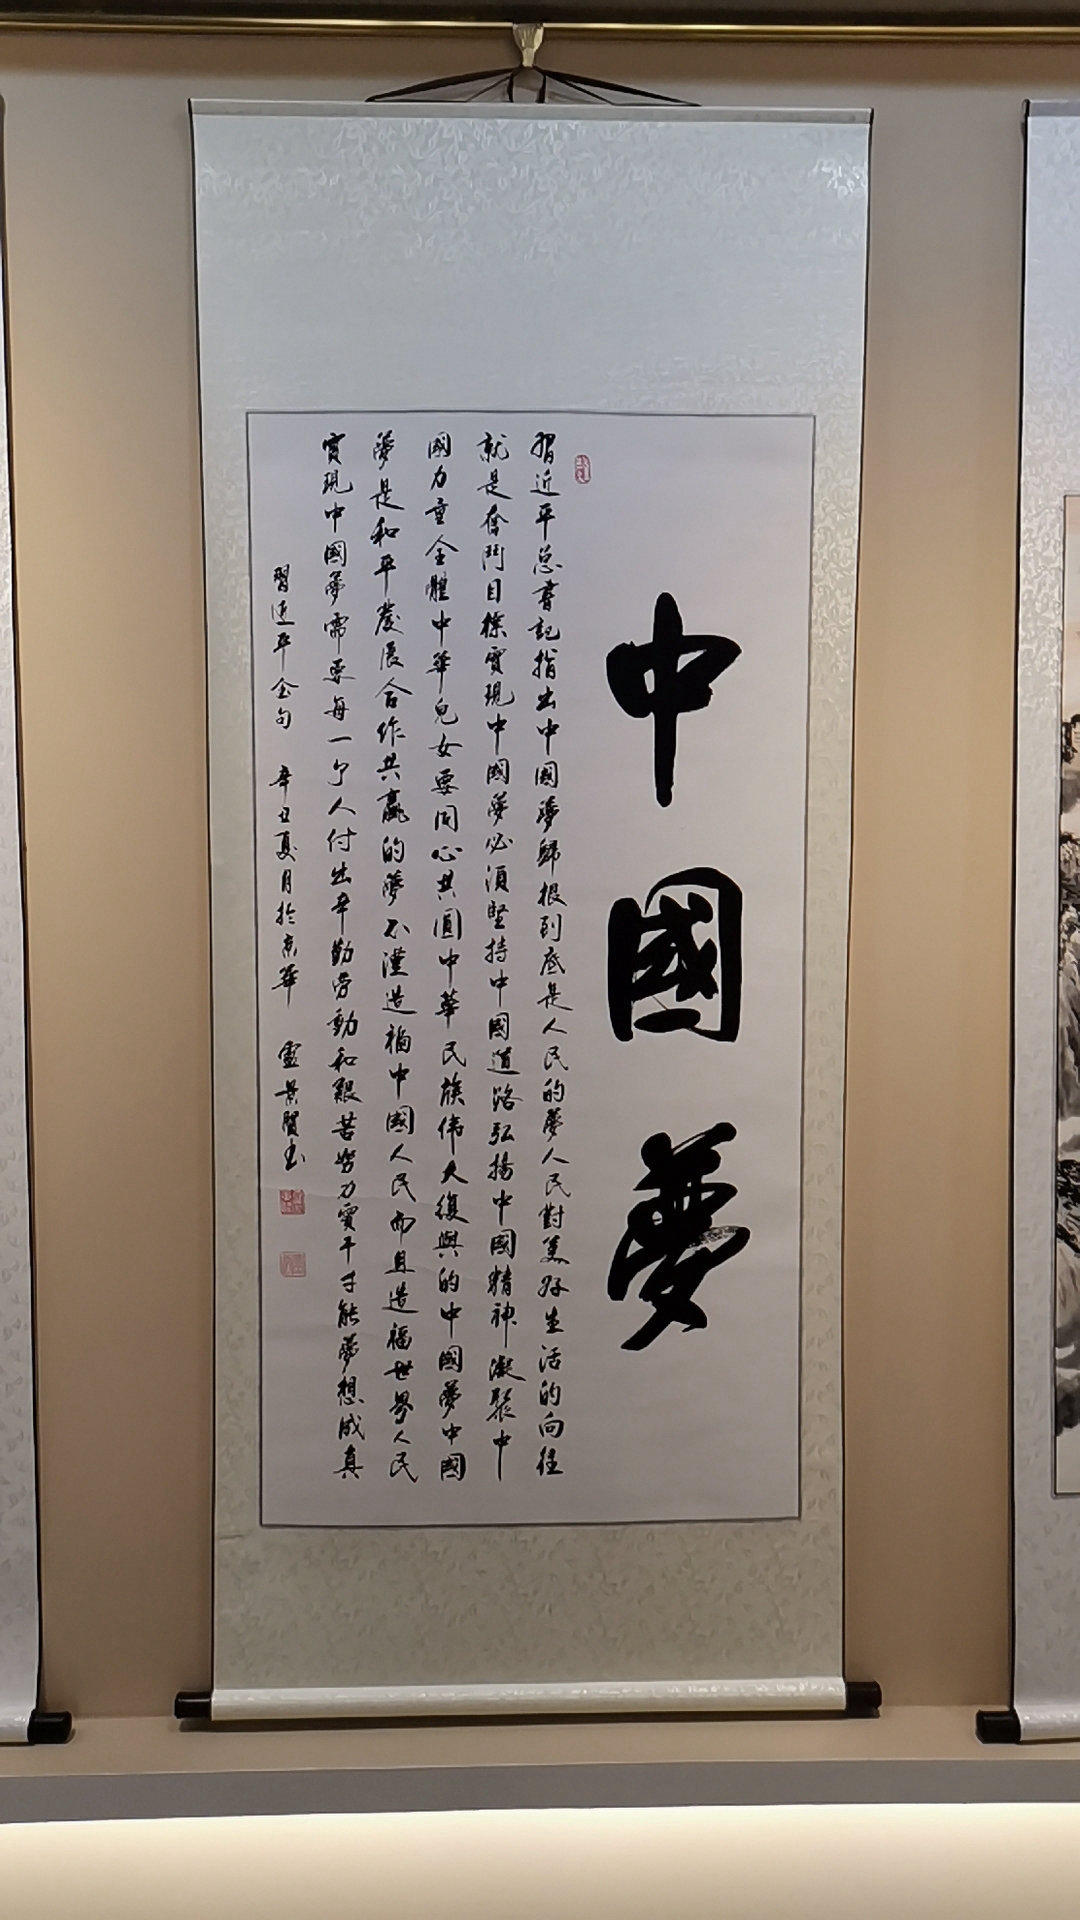 中國夢
習近平总書記指出中國夢歸根到底是人民的夢人民對美好生活的向往
就是奮鬥目標實現中國夢必須堅持中國道路弘揚中國精神凝聚中
國力量全體中華兒女要同心共圓中華民族偉大復興的中國夢中國
夢是和平發展合作共贏的夢不僅造福中國人民而且造福世界人民
實現中國夢需要每一个人付出辛勤劳動和艱苦努力實干才能夢想成真
習近平金句 辛丑夏月於京華 景賢书